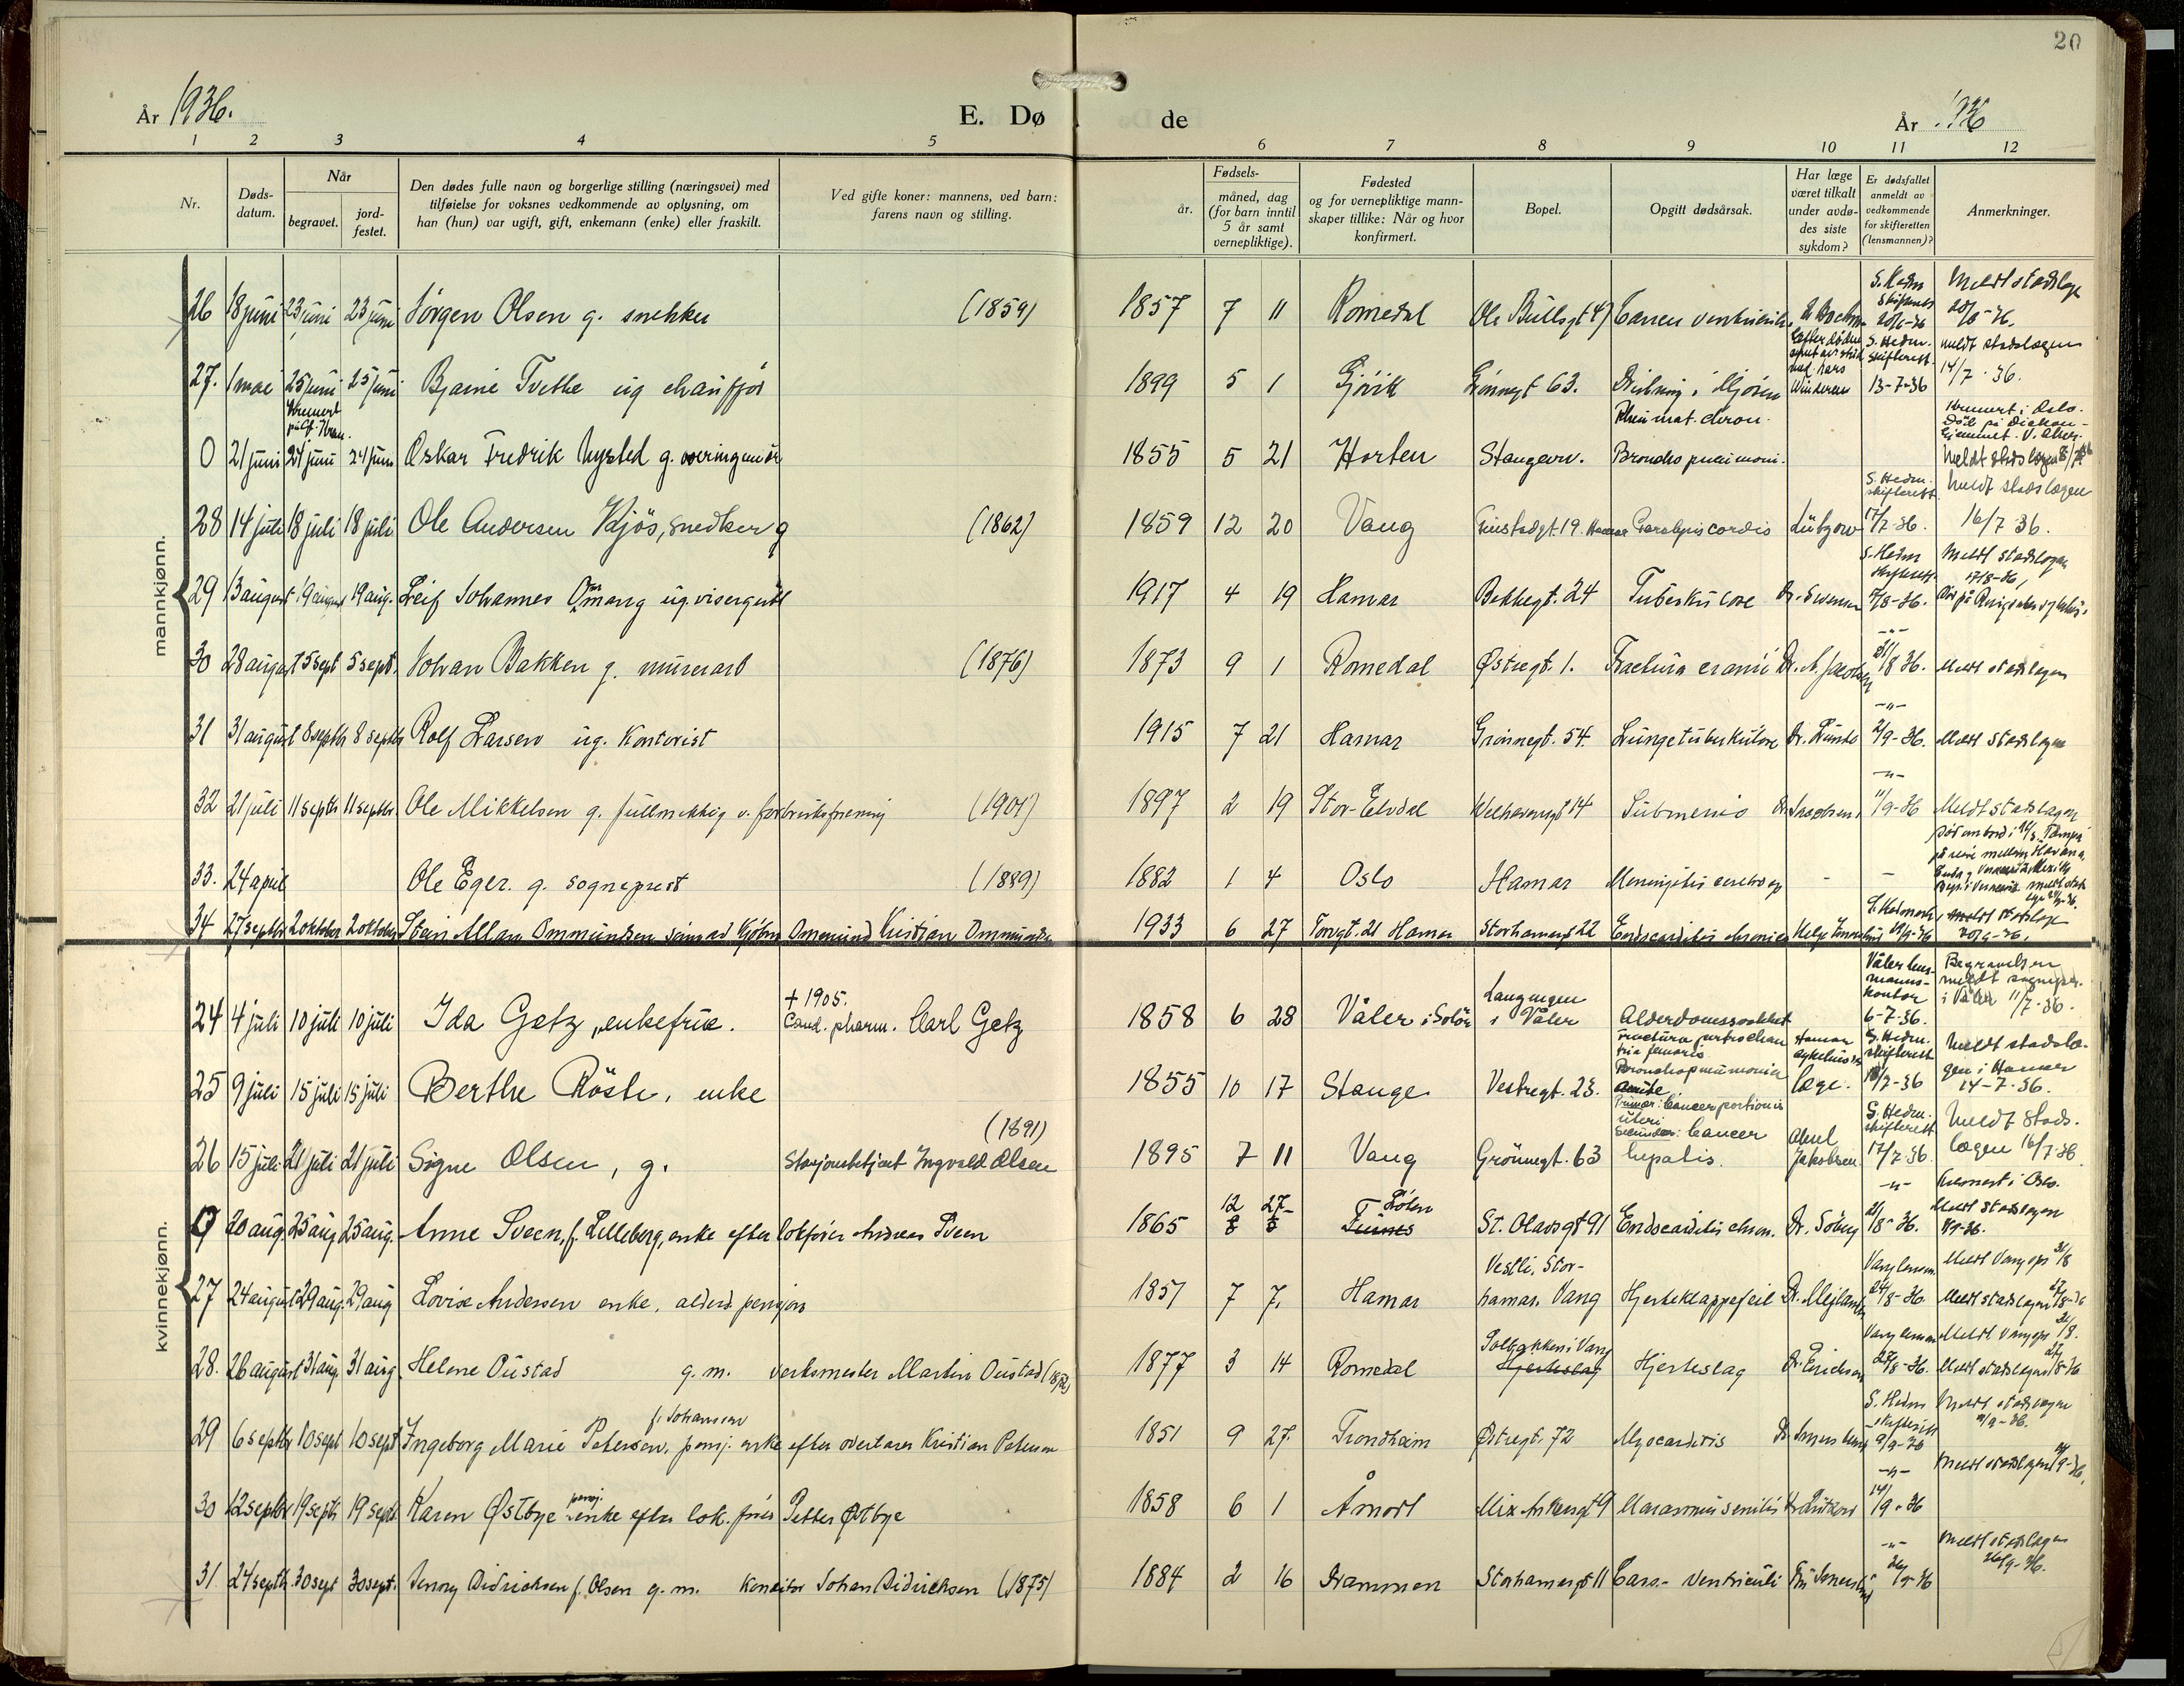 20
År 1936. E. Dø de År 1936
1 2 3 4 5 6 7 8 9 10 11 12
Nr.
Døds-
datum.
Når
begravet.
jord-
festet.
Den dødes fulle navn og borgerlige stilling (næringsvei) med
tilføielse for voksnes vedkommende av oplysning, om
han (hun) var ugift, gift, enkemann (enke) eller fraskilt.
Ved gifte koner: mannens, ved barn:
farens navn og stilling.
Fødsels-
år.
måned, dag
(for barn inntil
5 år samt
vernepliktige).
Fødested
og for vernepliktige mann-
skaper tillike: Når og hvor
konfirmert.
Bopel.
Opgitt dødsårsak.
Har læge
været tilkalt
under avdø-
des siste
sykdom?
Er dødsfallet
anmeldt av
vedkommende
for skifteretten
(lensmannen)?
Anmerkninger.
mankjønn.
26 18 juni 23 juni 23 juni Jörgen Olsen g. snekker (1859) 1857 7 11 Romedal Ole Bullsgt 47 Cancer ventriculi S. Hedm skifterett 20/6-36 Meldt stadslege 20/6-36.
27. 1 mai 25 juni 25 juni Bjarne Tvethe ug chauffør 1899 5 1 Gjövik Grönnegt 63. Drukning i Mjösen S. Hedm. skifterett. 13-7-36 meldt stadslægen 14/7-36.
0 21 juni 24 juni 24 juni Oskar Fredrik Nysted g. overingeniör 1855 5 21 Horten Stangevn. Rheumat. chron. Bronchopneumoni. Kremert i Oslo. Död på Diakon-hjemmet. V. Aker. Meldt stadslægen
28 14 juli 18 juli 18 juli Ole Andersen Kjös, snedker g (1862) 1859 12 20 Vang Furustadgt. 19. Hamar Paralysis cordis Lützow S. Hedm. skifterett 17/7-36. Meldt stadslægen 16/7 36.
29 13 august 19 august 19 aug. Leif Johannes Ommang ug. visergutt 1917 4 19 Hamar Bekkegt. 24 Tuberkulose Dr. Svensen S. Hedm skifterett 17/8-36. Meldt stadslegen 17/8-36,
30 28 august 5 sept 5 sept. Johan Bakken g. murerarb (1876) 1873 9 1 Romedal Østregt. 1. Fractura cranii Dr. A. Jacobsen -"- 31/8 36. Meldt stadslegen
31 31 august 8 septbr 8 septbr Rolf Larsen ug. Kontorist 1915 7 21 Hamar Grönnegt. 54. Lungetuberkulose Dr. Lunde -"- 2/9-36. Meldt stadslegen
32 21 juli 11 septbr 11 septbr. Ole Mikkelsen g. fullmektig v. forbruksforening (1901) 1897 2 19 Stor-Elvdal Welhavensgt 14 Submersio Dr. Jacobsen -"- 11/9-36 Meldt stadslegen
33. 24 april Ole Eger. g. sogneprest (1889) 1882 1 4 Oslo Hamar Meningitis cerebro - - Död ombord i M/S "Tampa" på reise mellem Havana
34 27 septbr 2 oktober 2 oktober Stein Allan Ommundsen sönn av Kjöbm Ommund Kristian Ommundsen 1933 6 27 Torvgt. 21 Hamar Storhamargt 22 Endocarditis chronica S. Hedmark 29/9-36 meldt stadslege
kvinnekjønn.
24 4 juli 10 juli 10 juli Ida Getz, enkefrue. + 1905. Cand. pharm. Carl Getz 1858 6 28 Våler i Solör Laugungen i Våler Alderdomssvakhet Våler lens-manns-kontor 6-7-36. Begravelsen meldt sognepr. i Våler 11/7-36.
25 9 juli 15 juli 15 juli Berthe Röste, enke 1855 10 17 Stange Vestregt. 23. Fractura pertrochanterica femoris Bronchopneumonia acuta Hamar sykehus's læge. S. Hedm. skifterett 13/7-36 Meldt stadslægen i Hamar 14-7-36.
26 15 juli 21 juli 21 juli Signe Olsen, g. (1891) Stasjonsbetjent Ingvald Olsen 1895 7 11 Vang Grönnegt. 63 Primær: Cancer portionis uteri Secundær: Cancer hepatis. Aksel Jakobsen S. Hedm. skifterett 17/7-36. Meldt stads-lægen 16/7 36
0 20 aug 25 aug 25 aug. Anne Sveen, f. Lilleberg, enke efter lokförer Andreas Sveen 1865 12 27 Löten Furnes St. Olavsgt 91 Endocarditis chron. Dr. Söberg -"- 21/8-36. Kremert i Oslo. Meldt stadslegen
27 24 august 29 aug. 29 aug Lovise Andersen enke, alderd. pensjon 1857 7 7. Hamar Vestli, Stor-hamar. Vang Hjerteklappefeil Dr. Mejlænder Vang lensm. 24/8-36. Meldt Vang ops 31/8 Meldt stadslegen 27/8-36
28. 26 august 31 aug. 31 aug Helene Oustad g.m. verksmester Martin Oustad 1877 3 14 Romedal Solbakken i Vang Hjerteslag Hjerteslag Dr. Erichsen Vang lensm 28/8-36. Meldt Vang ops 31/8. Meldt stadslegen 27/8-36
29 6 septbr 10 sept 10 sept Ingeborg Marie Petersen, f. Johansen pensj. enke efter overlærer Kristian Petersen 1851 9 27. Trondheim Østregt. 72 Myocarditis S. Hedm skifterett 9/9-36 Meldt stadslegen 9/9-36.
30 12 septbr 19 septb 19 septb. Karen Østbye pensj. enke efter lok.förer Petter Østbye 1858 6 1 Åmodt Mix Ankersgt 9 Marasmus senilis -"- 14/9-36 Meldt stadslegen 14/9-36.
31 24 septb. 30 sept 30 sept. Jenny Didrichsen f. Olsen g.m. Konditor Johan Didrichsen (1875) 1884 2 16 Drammen Storhamargt 11 Canc. ventriculi -"- 26/9-36 Meldt stadslegen 26/9-36.